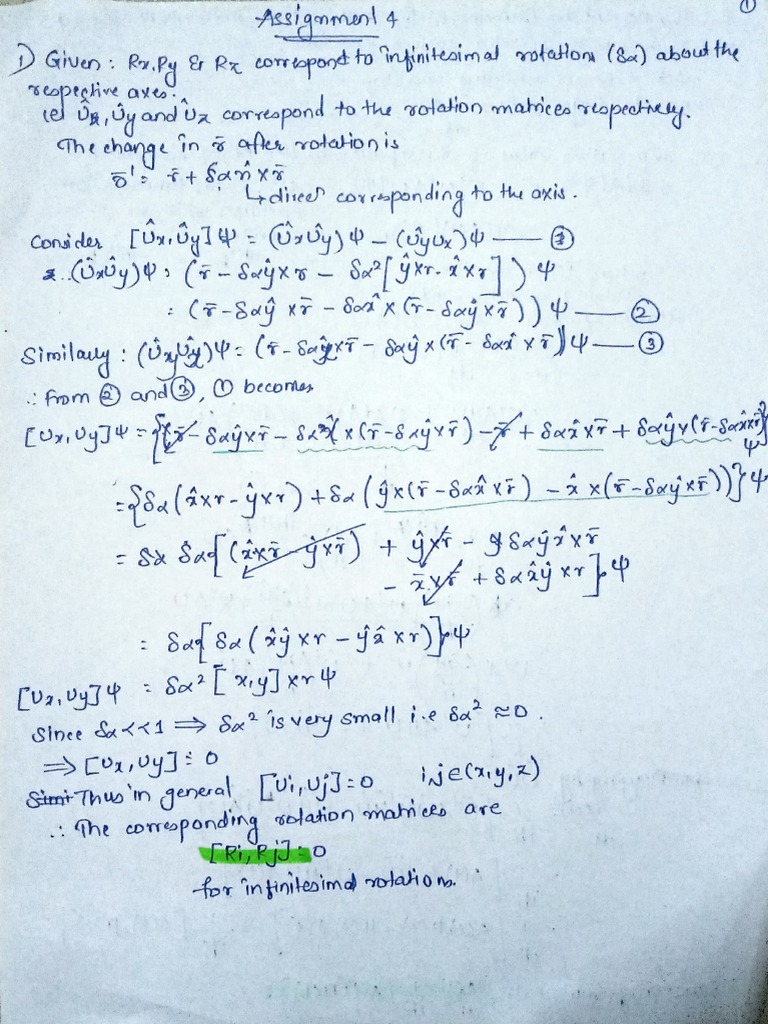 ①
Assignment 4
1) Given : Rx, Ry & Rz correspond to infinitesimal rotations (δα) about the
respective axes.
let Ûx, Ûy and Ûz correspond to the rotation matrices respectively.
The change in r̄ after rotation is
r̄' = r̄ + δα n̂ × r̄
↳ direcⁿ corresponding to the axis.
Consider [Ûx, Ûy]ψ = (ÛxÛy)ψ − (ÛyUx)ψ —— ①
∴ (ÛxÛy)ψ = (r̄ − δαŷ×r − δα²[ŷ×r − x̂×r])ψ
= (r̄ − δαŷ×r̄ − δαx̂×(r̄ − δαŷ×r̄))ψ —— ②
Similarly : (ÛyÛx)ψ = (r̄ − δαx̂×r̄ − δαŷ×(r̄ − δαx̂×r̄))ψ —— ③
∴ from ② and ③, ① becomes
[Ux, Uy]ψ = {r̄ − δαŷ×r̄ − δαx̂×(r̄ − δαŷ×r̄) − r̄ + δαx̂×r̄ + δαŷ×(r̄ − δαx̂×r̄)}ψ
= {δα(x̂×r − ŷ×r) + δα(ŷ×(r̄ − δαx̂×r̄) − x̂×(r̄ − δαŷ×r̄))}ψ
= δα{(x̂×r̄ − ŷ×r̄) + ŷ×r̄ − δαŷx̂×r̄
− x̄×r̄ + δαx̂ŷ×r}ψ
= δα{δα(x̂ŷ×r − ŷx̂×r)}ψ
[Ux, Uy]ψ = δα²[x,y]×rψ
Since δα<<1 ⟹ δα² is very small i.e δα² ≈ 0.
⟹ [Ux, Uy] = 0
Thus in general [Ui, Uj] = 0 i,j ∈ (x,y,z)
∴ The corresponding rotation matrices are
[Ri, Rj] = 0
for infinitesimal rotations.